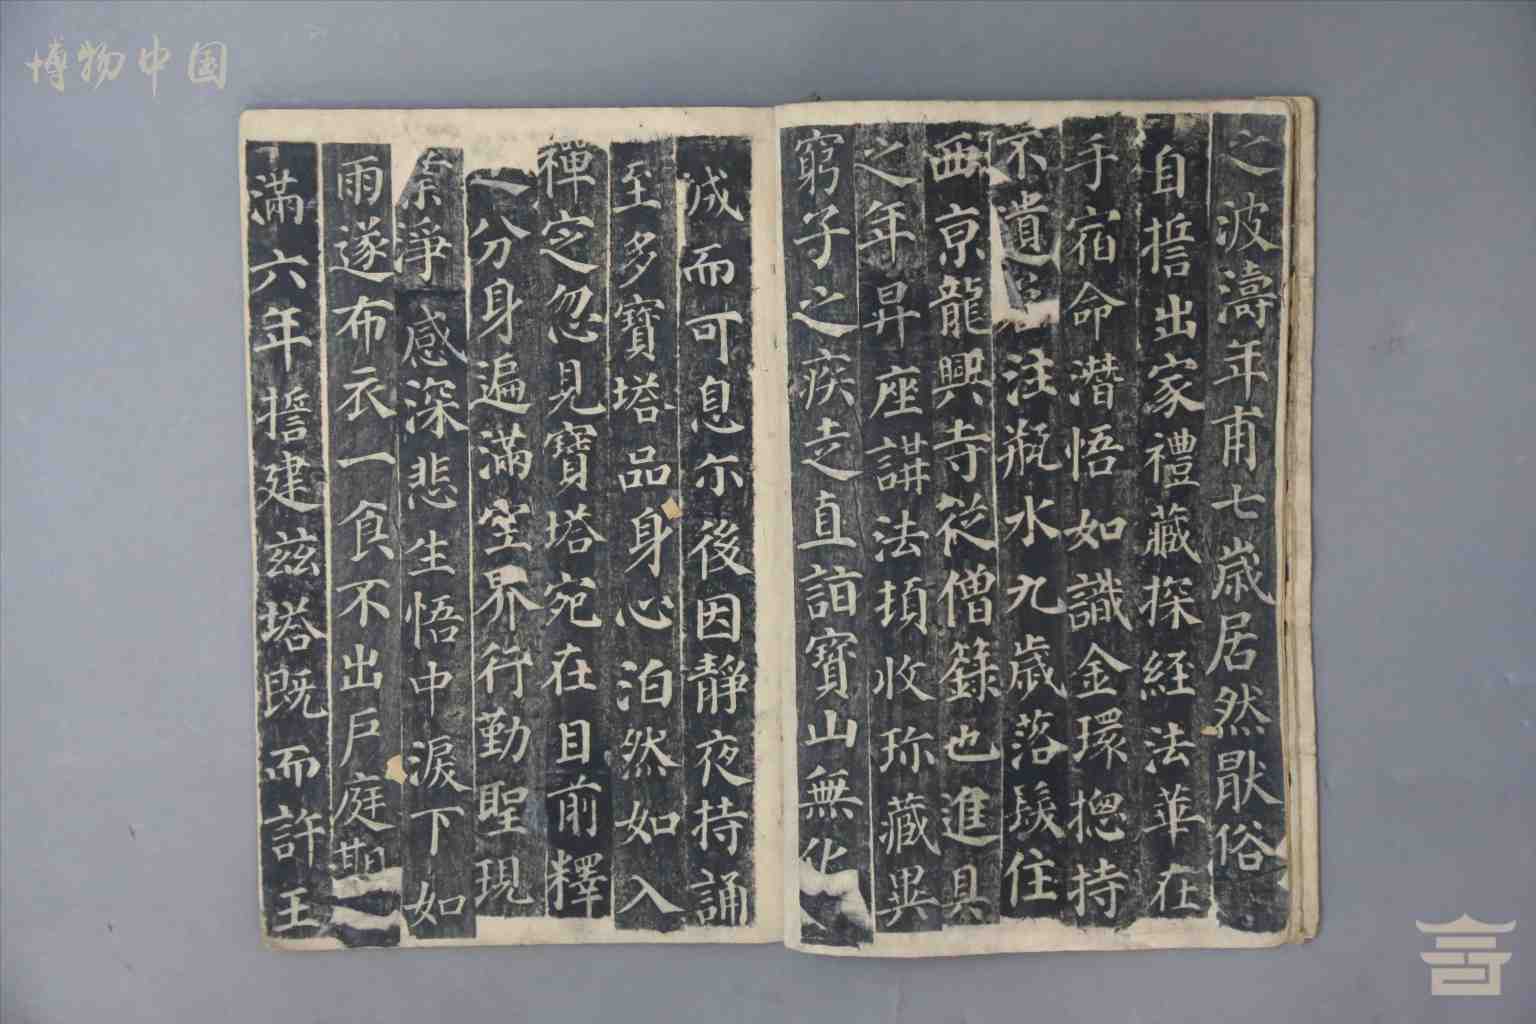 博物中国
之波濤年甫七歲居然厭俗
自誓出家禮藏探經法華在
手宿命潛悟如識金環揔持
不遺注瓶水九歲落髮住
西京龍興寺從僧籙也進具
之年昇座講法頓收珎藏異
窮子之疾走直詣寶山無化
城而可息尔後因靜夜持誦
至多寶塔品身心泊然如入
禪定忽見寶塔宛在目前釋
分身遍滿空界行勤聖現
業淨感深悲生悟中淚下如
雨遂布衣一食不出戶庭期
滿六年誓建茲塔既而許王